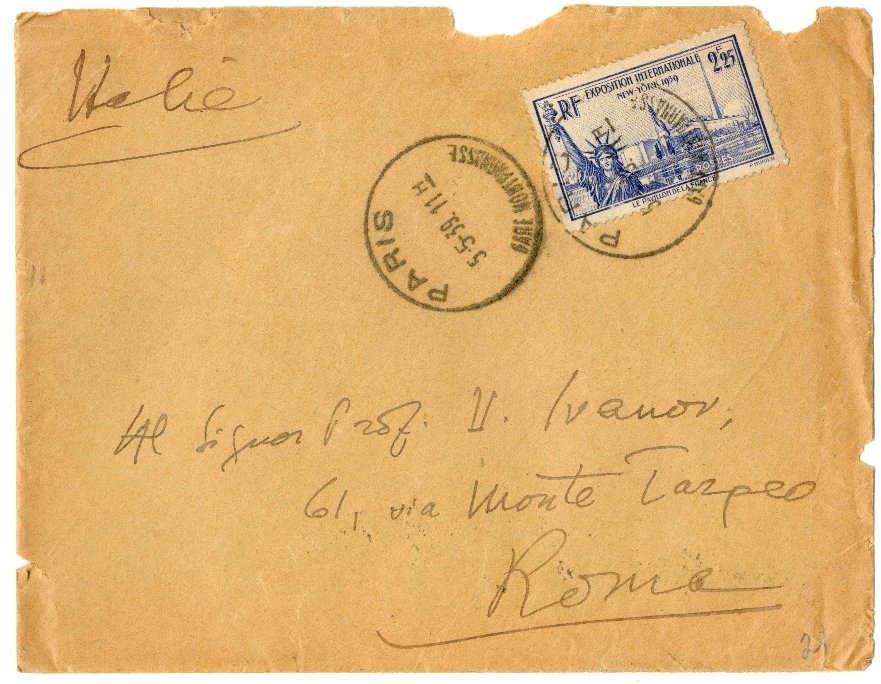 Italie
EXPOSITION INTERNATIONALE
NEW YORK 1939
2F25
RF
LE PAVILLON DE LA FRANCE
PARIS
GARE MONTPARNASSE
5-5-39. 11 H
PARIS
GARE MONTPARNASSE
Al Signor Prof. V. Ivanov,
61, via Monte Tarpeo
Roma
21